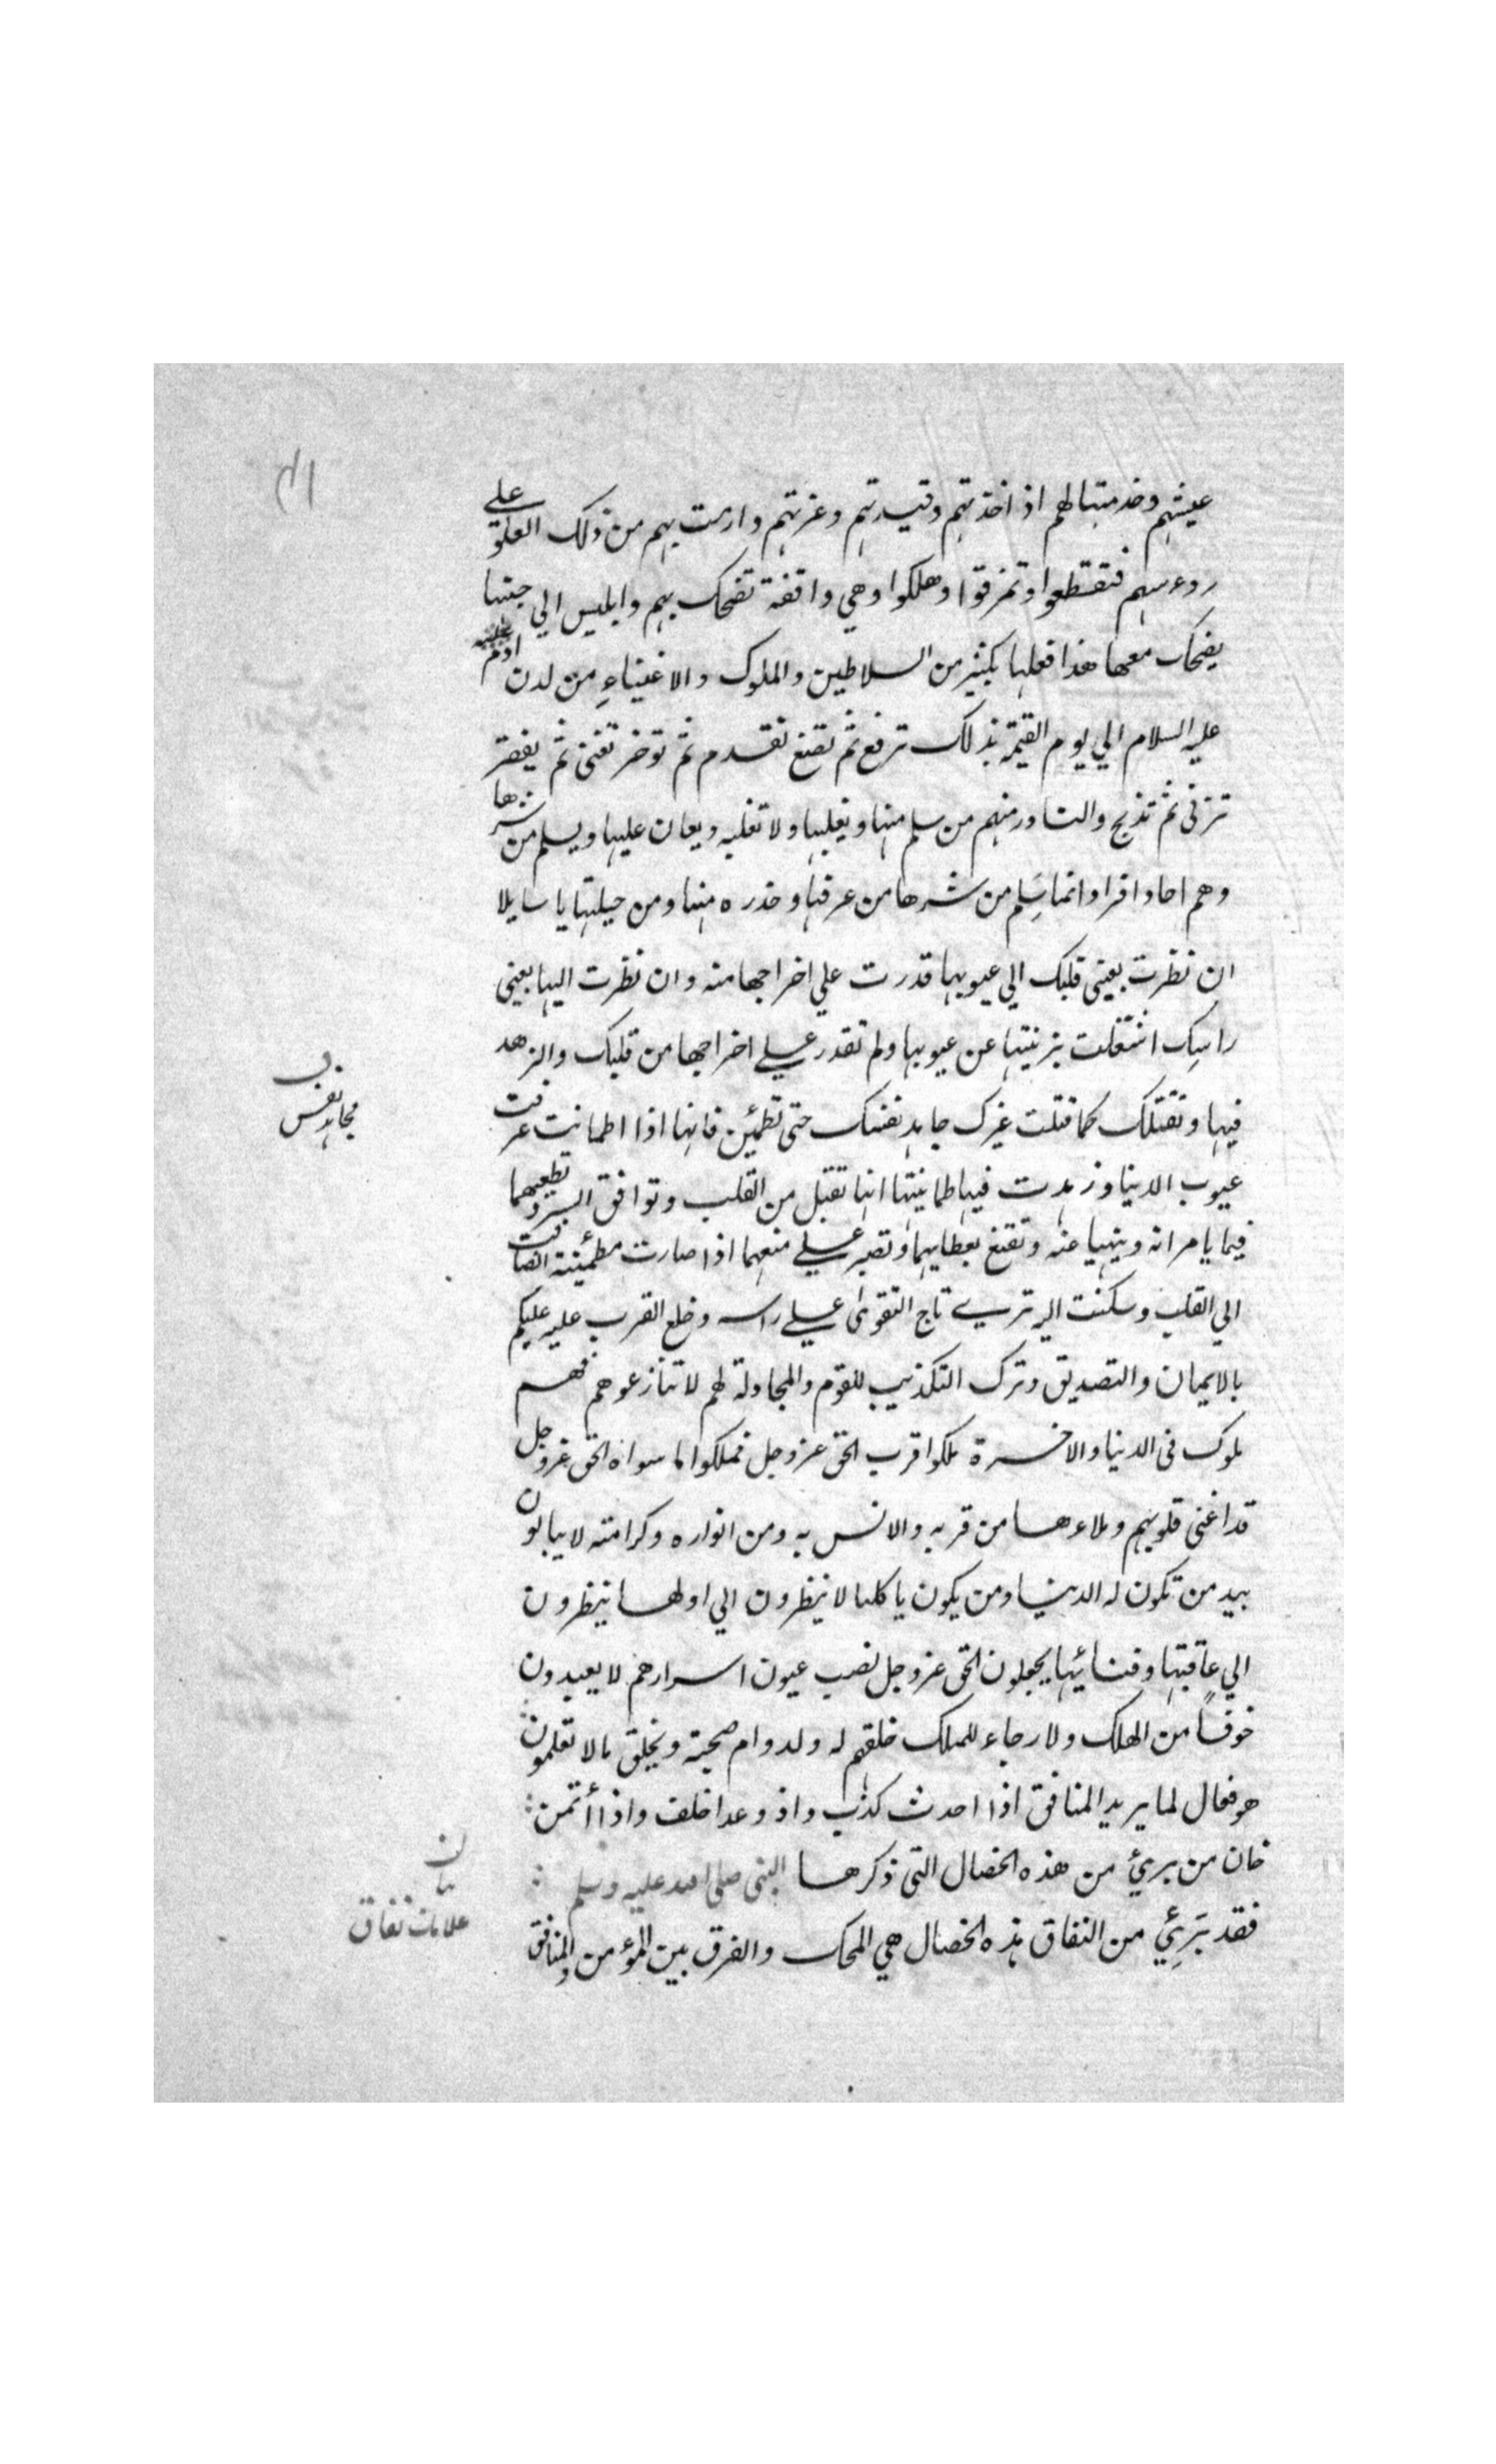 عيشهم وخدمتها لهم اذ اخذتهم وقيدتهم وغرتهم وارمت بهم من ذلك العلو علي
روءسهم فتقطعوا وتمزقوا وهلكوا وهي واقفة تضحك بهم وابليس الي جنبها
يضحك معها هذا فعلها بكثير من السلاطين والملوك والاغنياء من لدن ادم
عليه السلام الي يوم القيمة بذلك ترفع ثم تضع تقدم ثم توخر تغني ثم يفقر
تربي ثم تذبح والنادر منهم من سلم منها ويغلبها ولا تغلبه ويعان عليها ويسلم من شرها
وهم احاد افراد انما سلم من شرها من عرفها وحذره منها ومن حيلتها يا سايلا
ان نظرت بعيني قلبك الي عيوبها قدرت علي اخراجها منه وان نظرت اليها بعيني
راسك اشتغلت بزينتها عن عيوبها ولم تقدر علي اخراجها من قلبك والزهد
فيها وتقتلك كما قتلت غيرك جاهد نفسك حتي تطمئن فانها اذا اطمانت عرفت
عيوب الدنيا وزهدت فيها طمانينتها انها تقبل من القلب وتوافق السر وتطيعهما
فيما يامرانه وينهيا عنه وتقنع بعطايهما وتصبر علي منعهما اذا صارت مطمئنة انضافت
الي القلب وسكنت اليه تري تاج التقوي علي راسه وخلع القرب عليه عليكم
بالايمان والتصديق وترك التكذيب للقوم والمجادلة لهم لا تنازعوهم فهم
ملوك في الدنيا والاخرة ملكوا قرب الحق عزوجل فملكوا ما سواه الحق عزوجل
قد اغني قلوبهم وملاءها من قربه والانس به ومن انواره وكرامته لا يبالون
بيد من تكون له الدنيا ومن يكون ياكلها لا ينظرون الي اولها ينظرون
الي عاقبتها وفنائيها يجعلون الحق عزوجل نصب عيون اسرارهم لا يعبدون
خوفاً من الهلك ولا رجاء للملك خلقهم له ولدوام صحبته ويخلق مالا تعلمون
هو فعال لما يريد المنافق اذا احدث كذب واذ وعد اخلف واذا أتمن
خان من بريئ من هذه الخصال التي ذكرها النبي صلي الله عليه وسلم
فقد بَرِئي من النفاق هذه الخصال هي المحك والفرق بين المؤمن والمنافق
مجاهد نفس
علامات نفاق